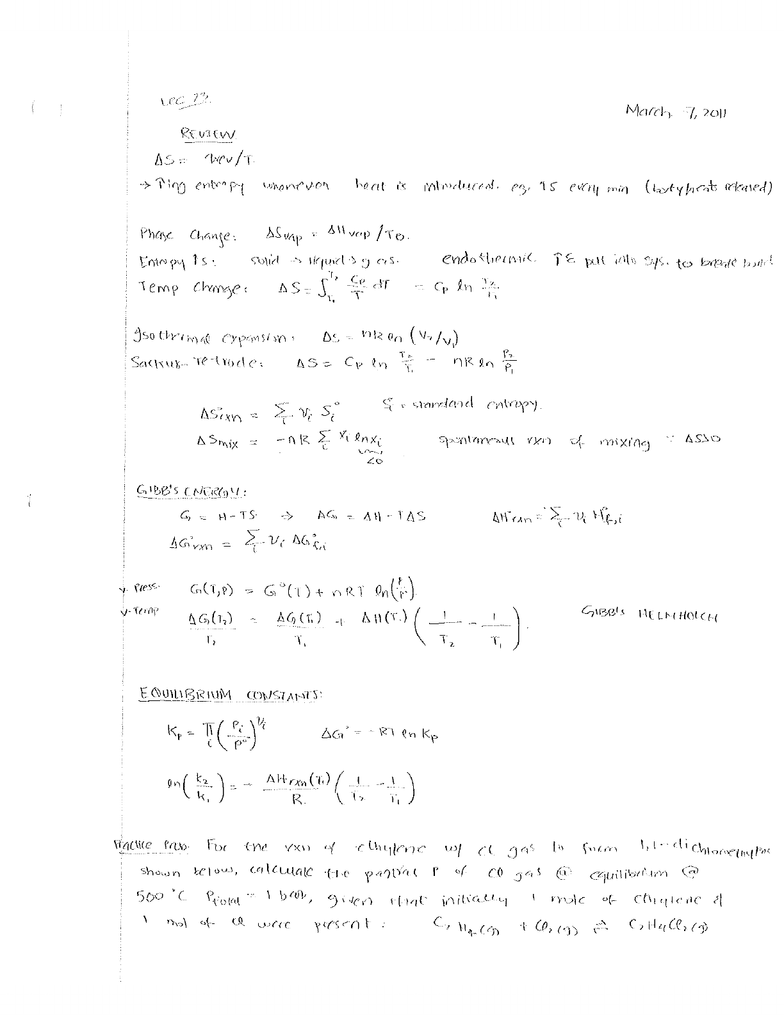 LEC 23.
March 7, 2011
REVIEW
ΔS = qrev/T
→ ↑ing entropy whenever heat is introduced. eg. ↑S every min (body heat released)
Phase Change: ΔSvap = ΔHvap/Tb.
Entropy ↑s: solid → liquid → gas. endothermic. ↑E put into sys. to break bond
Temp Change: ΔS = ∫_{T₁}^{T₂} Cp/T dT = Cp ln T₂/T₁
Isothermal expansion: ΔS = nR ln (V₂/V₁)
Sackur-Tetrode: ΔS = Cp ln T₂/T₁ - nR ln P₂/P₁
ΔS°rxn = Σᵢ νᵢ Sᵢ° Sᵢ° = standard entropy.
ΔSmix = -nR Σᵢ xᵢ ln xᵢ spontaneous rxn of mixing ∵ ΔS>0
<0
GIBB'S ENERGY:
G = H-TS ⇒ ΔG = ΔH-TΔS ΔH°rxn = Σᵢ νᵢ H°f,i
ΔG°rxn = Σᵢ νᵢ ΔG°f,i
v. Press. G(T,P) = G°(T) + nRT ln(P/P°)
v. Temp ΔG(T₂)/T₂ = ΔG(T₁)/T₁ + ΔH(T₁) (1/T₂ - 1/T₁). GIBB'S HELMHOLTZ
EQUILIBRIUM CONSTANTS:
Kp = Πᵢ (Pᵢ/P°)^νᵢ ΔG° = -RT ln Kp
ln(k₂/k₁) = - ΔHrxn(T₁)/R (1/T₂ - 1/T₁)
Practice Prob. For the rxn of ethylene w/ Cl gas to form 1,1-dichloroethylene
shown below, calculate the partial P of Cl gas @ equilibrium @
500 °C Ptotal = 1 bar, given that initially 1 mole of ethylene &
1 mol of Cl were present: C₂H₄(g) + Cl₂(g) ⇌ C₂H₄Cl₂(g)